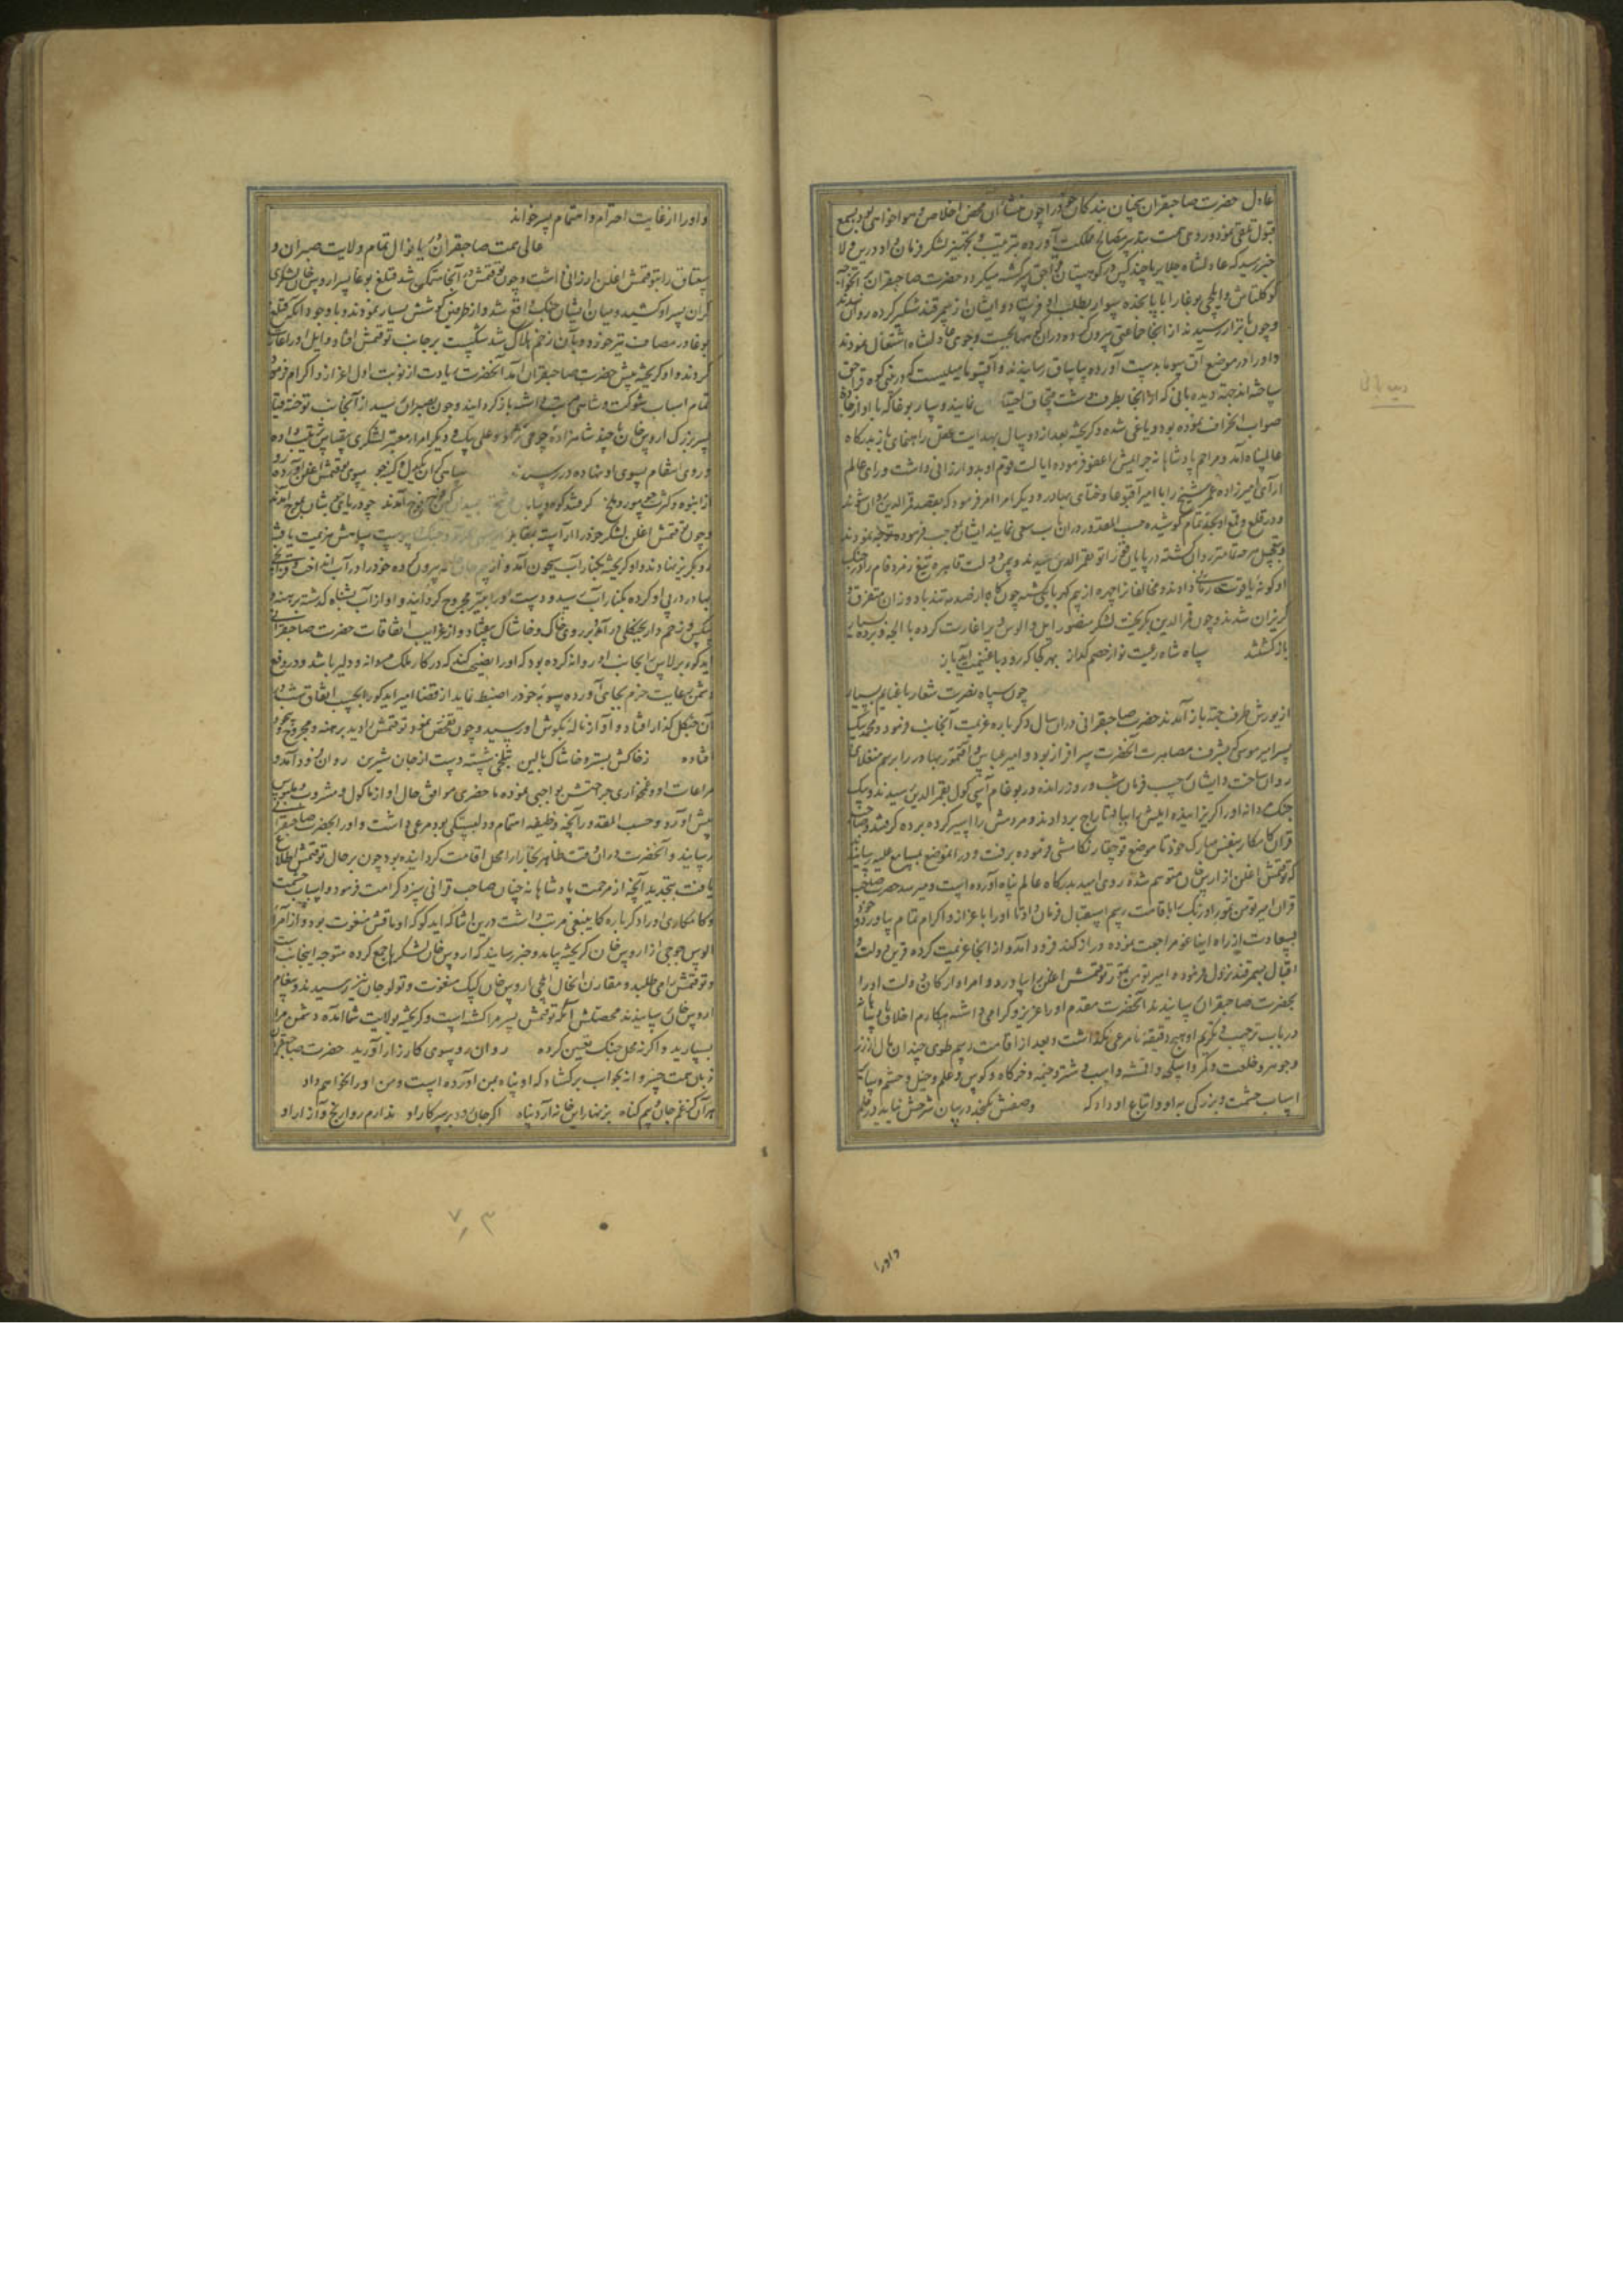 عادل حضرت صاحبقران سخنان بندگان خود را چون منشاء آن محض اخلاص و هواخواهی بود بسمع
قبول تلقی نموده و روی همت بتدبیر مصالح مملکت آورده بترتیب و تجهیز لشکر فرمان داد درین ولا
خبر رسید که عادلشاه جلایر با چند کس در کوهستان قراجق سرگشته میگردد حضرت صاحبقرانی
کوکلتاش و ایلچی بوغا را با پانجده سوار بطلب او فرستاد و ایشان از سمرقند شبگیر کرده روان شدند
و چون باترار رسیدند از آنجا جماعتی بیرون کرده در آن کوهها بجست و جوی عادلشاه اشتغال نمودند
و او را در موضع آق سوما بدست آورده بیاساق رسانیدند و آقسوما میلیست که در تیغ کوه قراجق
ساخته‌اند جهة دیده بانی که از آنجا بطرف دشت قبچاق احتیاط نمایند و سار بوغا که با او از جادهٔ
صواب انحراف نموده بود و یاغی شده و گریخته بعد از دو سال بهدایت عقل رهنمای باز بدرگاه
عالم‌پناه آمد و مراحم پادشاهانه جرایمش را عفو فرموده ایالت قوم او بدو ارزانی داشت و رای عالم
آرای امیرزاده عمر شیخ را با امیر آقبوغا و ختای بهادر و دیگر امرا امر فرمود که بقصد قمرالدین روان شوند
و در قلع و قمع او بجد تمام کوشیده حسب المقدور در آن باب سعی نمایند ایشان بموجب فرموده توجه نمودند
و بتعجیل هر چه تمامتر روان گشته در بیابان بقمرالدین رسیدند و بیمن دولت قاهره تیغ زمرد فام را در جنگ
او گونهٔ یاقوت رمانی دادند و مخالفان را چهره از بیم کهربایی گشته چون کاه از صدمه تندباد وزان متفرق و
گریزان شدند و چون قمرالدین بگریخت لشکر منصور ایل و الوس ویرا غارت کرده با الجه و بردهٔ بسیار
بازگشتند سپاه شاه رعیت نواز خصم گداز بهر کجا که رود با غنیمت آید باز
چون سپاه نصرت شعار با غنایم بسیار
از یورش طرف جته باز آمدند حضرت صاحبقرانی در آن سال دگر باره عزیمت آنجانب فرمود و محمد بیک
پسر امیر موسی که بشرف مصاهرت آنحضرت سرافراز بود و امیر عباس و آقتمور بهادر را برسم منغلای
روان ساخت و ایشان حسب فرمان شب و روز رانده در بوغام آسی کول بقمرالدین رسیدند و بیک
جنگ مردانه او را گریزانیده ایلش را بباد تاراج بردادند و مردمش را اسیر کرده برده گرفتند و صاحب
قران کامکار بنفس مبارک خود تا موضع قوچقار تکامشی فرموده برفت و در آن موضع بمسامع علیه رسانیدند
که توقتمش اغلن از اروس خان متوهم شده روی امید بدرگاه عالم پناه آورده است و میرسد حضرت صاحب
قران امیر تومن تمور اوزبک را باقامت رسم استقبال فرمان داد تا او را باعزاز و اکرام تمام بیاورد و خود
بسعادت از راه ایناغو مراجعت نموده در اوزکند فرود آمد و از آنجا عزیمت کرده قرین دولت و
اقبال بسمرقند نزول فرموده امیر تومن تمور توقتمش اغلن را بیاورد و امرا و ارکان دولت او را
بحضرت صاحبقرانی رسانیدند آنحضرت مقدم او را عزیز و گرامی داشته بمکارم اخلاق پادشاهانه
در باب ترحیب و تکریم او هیچ دقیقه نامرعی نگذاشت و بعد از اقامت رسم طوی چندان مال از زر
و جوهر و خلعت و کمر و اسلحه و اقمشه و اسب و شتر و خیمه و خرگاه و کوس و علم و خیل و حشم و سایر
اسباب حشمت و بزرگی به او و اتباع او داد که وصفش نگنجد در بیان شرحش نیاید در قلم
و او را
و او را از غایت احترام و اهتمام پسر خواند
عالی همت صاحبقران گیتی‌نوال تمام ولایت صبران و
سغناق را بتوقتمش اغلن ارزانی داشت و چون توقتمش در آنجا متمکن شد قتلغ بوغا پسر اروس خان لشکری
گران بسر او کشید و میان ایشان جنگ واقع شد و از طرفین کوشش بسیار نمودند و با وجود آنکه قتلغ
بوغا در مصاف تیر خورده و بآن زخم هلاک شد شکست بر جانب توقتمش افتاد و ایل او را غارت
کردند و او گریخته پیش حضرت صاحبقران آمد آنحضرت زیادت از نوبت اول اعزاز و اکرام فرمود
تمام اسباب شوکت و شاهی مرتب داشته باز گردانید و چون بصبران رسید از آنجانب توخته قیا
پسر بزرگ اروس خان با چند شاهزاده جوجی نژاد و علی بیک و دیگر امرا و معتبر لشکری بقیاس ترتیب داده
و روی انتقام بسوی او نهاده در رسیدند سپاهی گران یکدل و کینه‌جو بسوی توقتمش اغلن آورده رو
از انبوه و کثرت چو مور و ملخ گرفتند کوه و بیابان فوج فوج آمدند چو دریای جوشان بموج آمدند
و چون توقتمش اغلن لشکر خود را آراسته بمقابله سپاهش هزیمت یافته
رو بگریز نهادند و او گریخته بکنار آب سیحون آمد و از بیم جان جامه بیرون کرده خود را در آب انداخت و قزانجی
بهادر در پی او کرده بکنار آب رسید و دست او را بتیر مجروح گردانید و او از آب بشناه گذشته برهنه و
بیکس و زخم‌دار بجنگلی در آمد و بر روی خاک و خاشاک بیفتاد و از غرایب اتفاقات حضرت صاحبقرانی
ایدکو برلاس را بجانب او روانه کرده بود که او را نصیحت کند که در کار ملک مردانه و دلیر باشد و در دفع
دشمن رعایت حزم بجای آورده پیوسته خود را ضبط نماید از قضا امیر ایدکو را بحسب اتفاق شب در
آن جنگل گذار افتاد و آواز نالهٔ بگوش او رسید و چون تفحص نمود توقتمش را دید برهنه و مجروح بیخود
افتاده ز خاکش بستر و خاشاک بالین بتلخی شسته دست از جان شیرین روان فرود آمد و
مراعات او و غمخواری جراحتش بواجبی نموده ما حضری موافق حال او از ماکول و مشروب و ملبوس
پیش آورد و حسب المقدور آنچه وظیفه اهتمام و دلبستگی بود مرعی داشت و او را بحضرت صاحبقرانی
رسانید و آنحضرت در آن وقت ظاهر بخارا را محل اقامت گردانیده بود چون بر حال توقتمش اطلاع
یافت بتجدید آنچه از مرحمت پادشاهانه چنان صاحب قرانی سزد کرامت فرمود و اسباب حشمت
و کامکاری او را دگر باره کما ینبغی مرتب داشت درین اثنا که ایدکو که اوماقش منغوت بود و از امرای
الوس جوجی از اروس خان گریخته بیامد و خبر رسانید که اروس خان لشکرها جمع کرده متوجه اینجانب است
و توقتمش را می‌طلبد و مقارن آنحال ایلچی اروس خان کپک منغوت و تولوجان نیز رسیدند و پیغام
اروس خان رسانیدند محصلش آنکه توقتمش پسر مرا کشته است و گریخته بولایت شما آمده دشمن مرا
بسپارید و اگر نه محل جنگ تعیین کرده روان رو بسوی کارزار آورید حضرت صاحبقرانی
زبان همت خسروانه بجواب برگشاد که او پناه بمن آورده است و من او را نخواهم داد
هر آن کز غم جان و بیم گناه بزنهار این خانه آرد پناه اگر جان رود بر سر کار او ندارم روا رنج و آزار او
۷۳